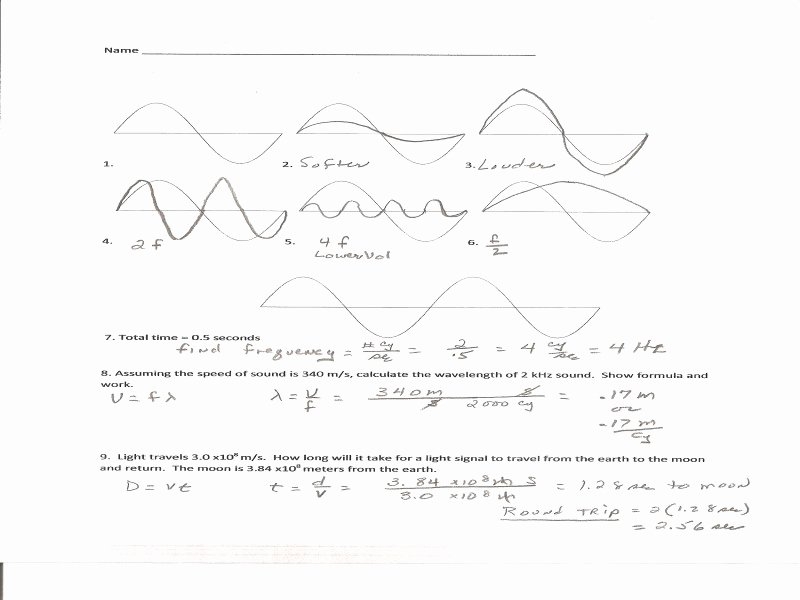 Name
1.
2. Softer
3. Louder
4. 2 f
5. 4 f
Lower Vol
6. f/2
7. Total time = 0.5 seconds
find frequency = # cy/sec = 2/.5 = 4 cy/sec = 4 Hz
8. Assuming the speed of sound is 340 m/s, calculate the wavelength of 2 kHz sound. Show formula and
work.
V = f λ λ = V/f = 340 m s/s 2000 cy = .17 m
or
.17 m/cy
9. Light travels 3.0 x10⁸ m/s. How long will it take for a light signal to travel from the earth to the moon
and return. The moon is 3.84 x10⁸ meters from the earth.
D = vt t = d/v = 3.84 x10⁸ m s/3.0 x10⁸ m = 1.28 sec to moon
Round trip = 2(1.28 sec)
= 2.56 sec